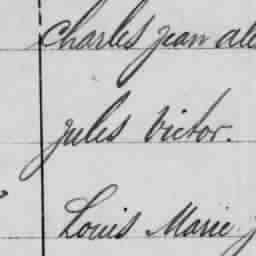 Charles jean ale
jules Victor.
Louis Marie j